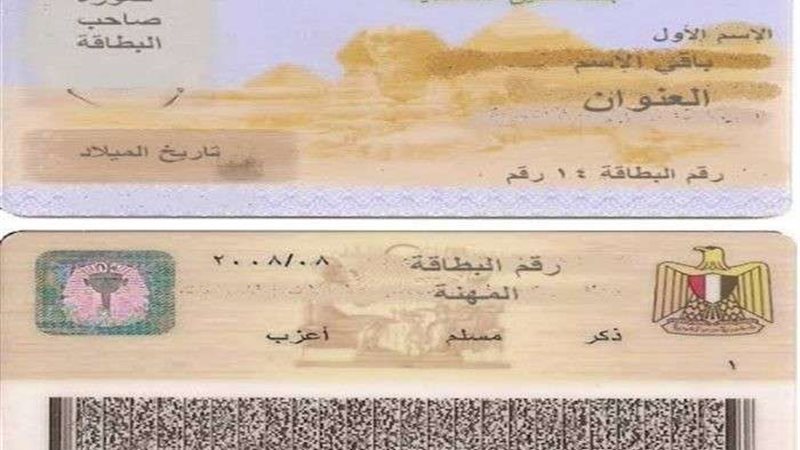 صاحب
البطاقة
الإسم الأول
باقي الإسم
العنوان
تاريخ الميلاد
رقم البطاقة ١٤ رقم
رقم البطاقة ٢٠٠٨/٠٨
المهنة
ذكر مسلم أعزب
١